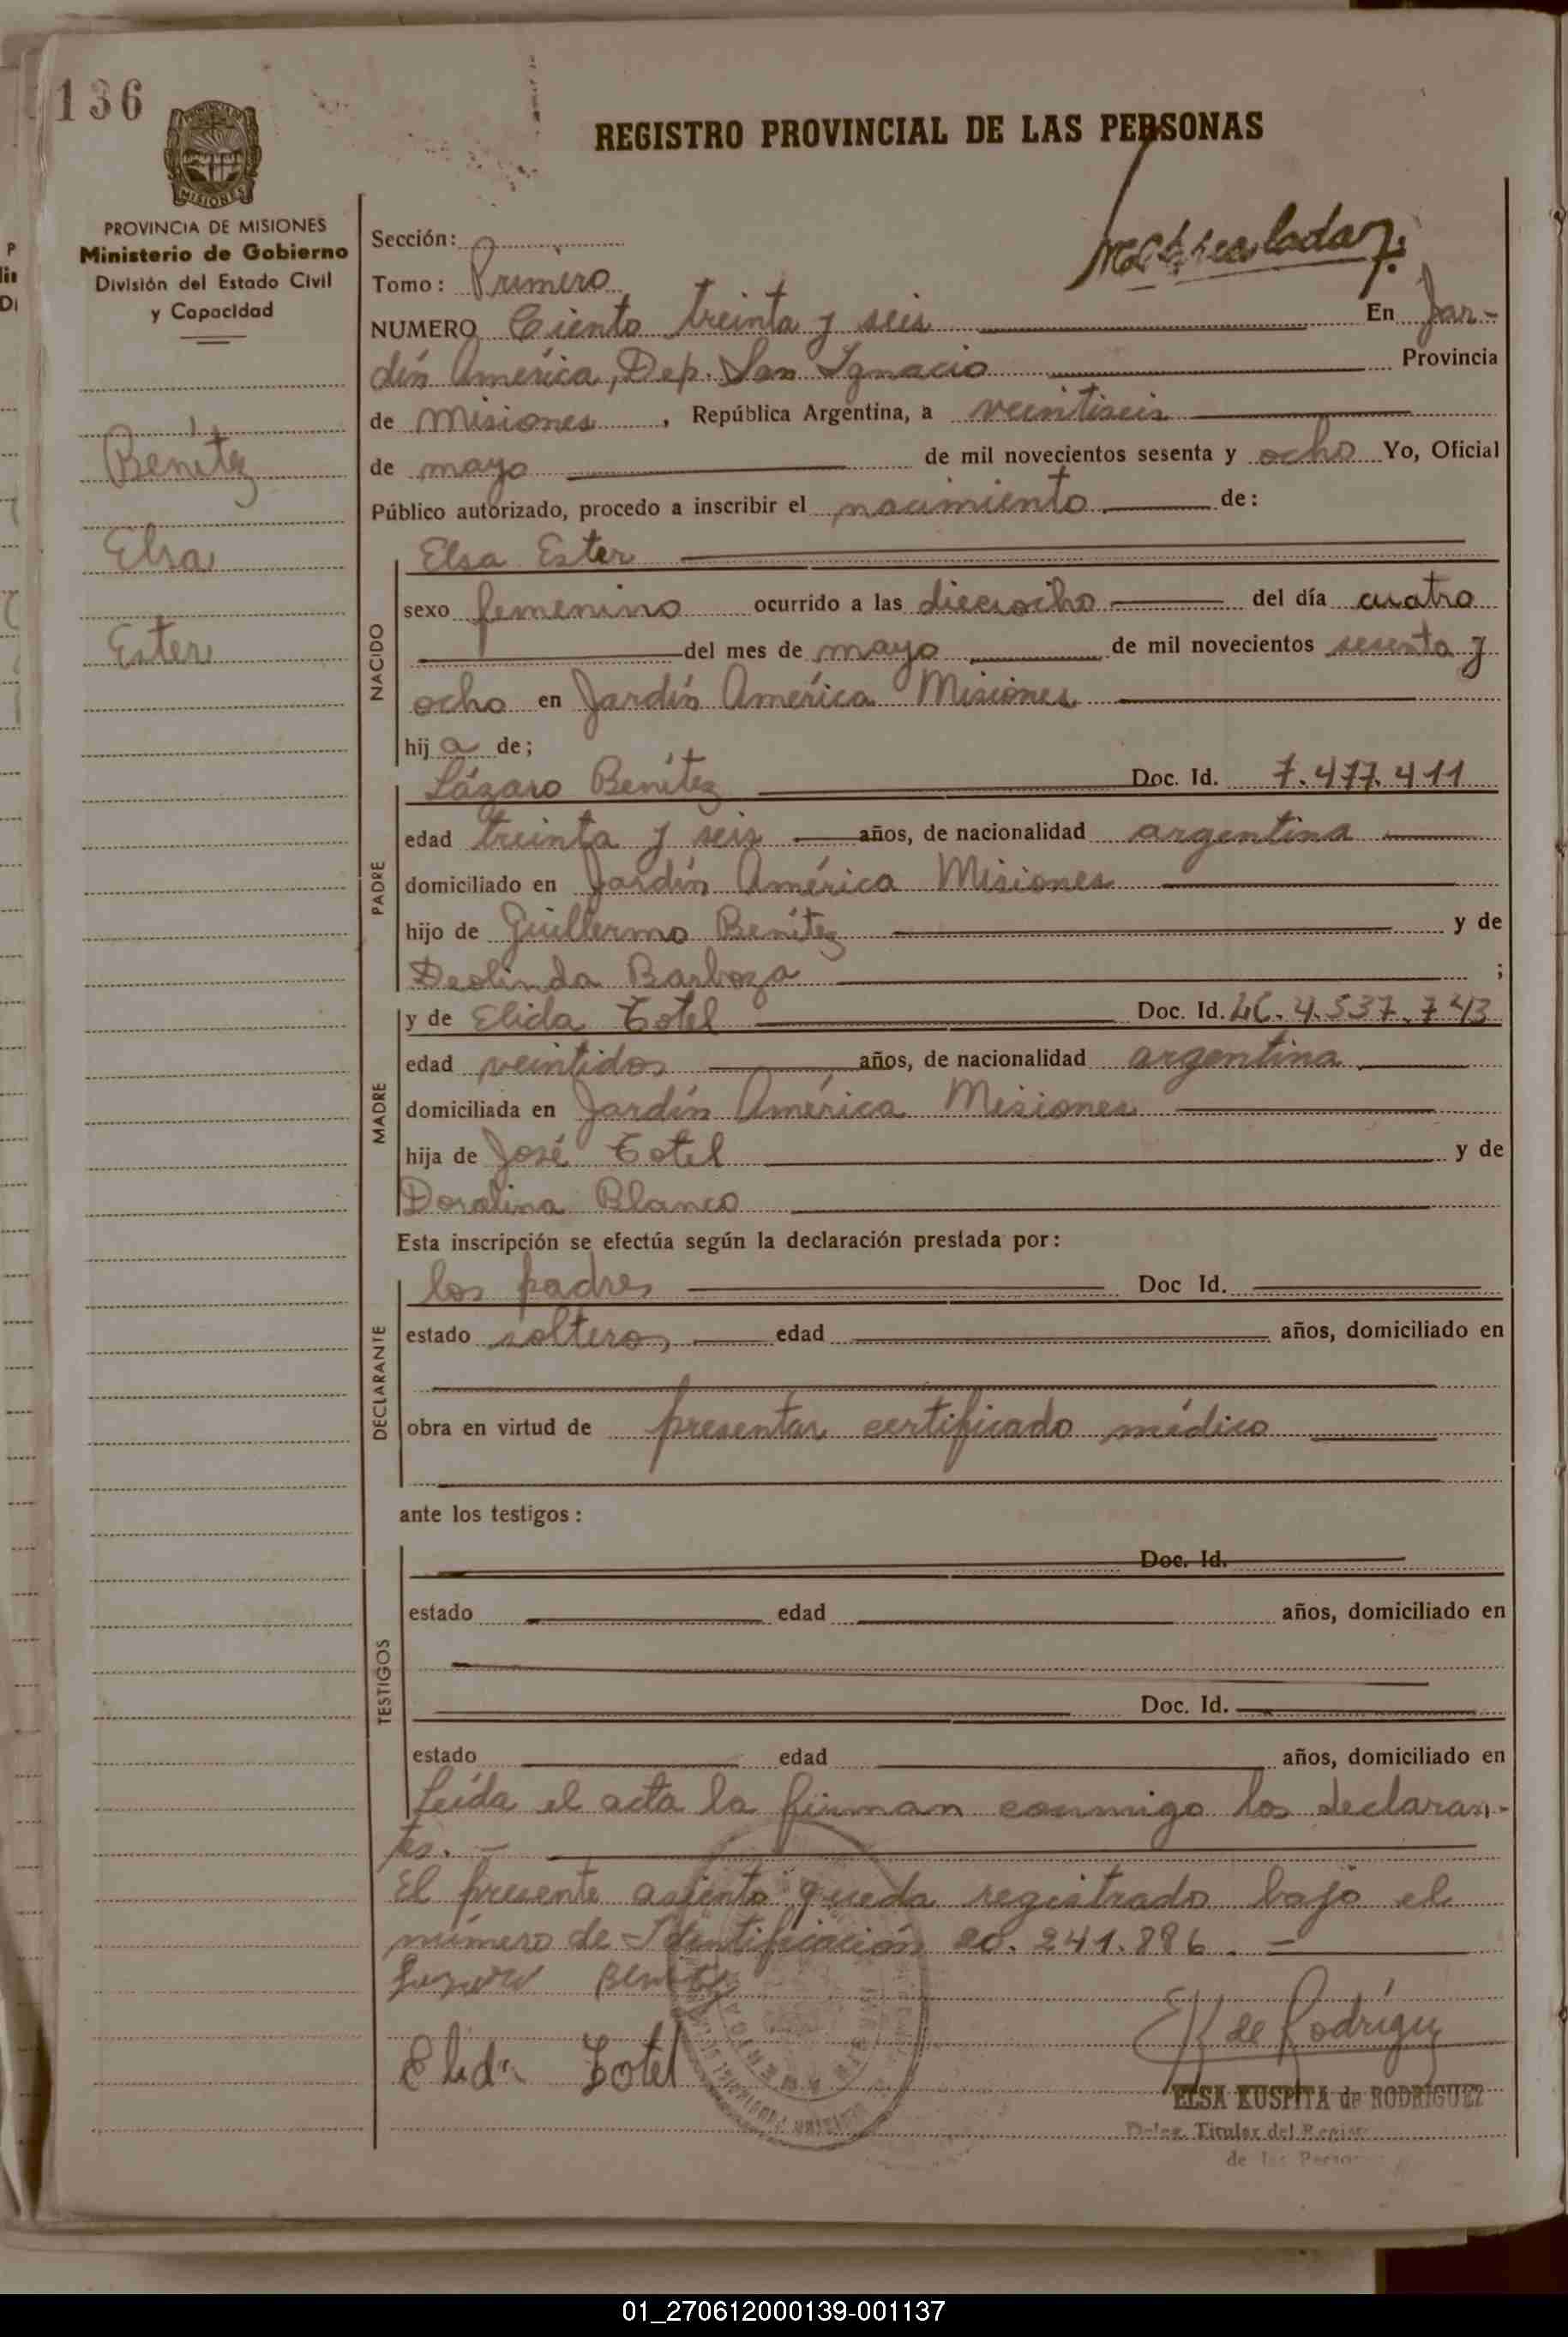 136
REGISTRO PROVINCIAL DE LAS PERSONAS
PROVINCIA DE MISIONES
Ministerio de Gobierno
División del Estado Civil
y Capacidad
Benítez
Elsa
Ester
Sección:
Tomo: Primero
NUMERO Ciento treinta y seis En Jar-
dín América, Dep. San Ignacio Provincia
de Misiones, República Argentina, a veintiseis
de mayo de mil novecientos sesenta y ocho Yo, Oficial
Público autorizado, procedo a inscribir el nacimiento de:
NACIDO
Elsa Ester
sexo femenino ocurrido a las dieciocho del día cuatro
del mes de mayo de mil novecientos sesenta y
ocho en Jardín América Misiones
hij a de;
PADRE
Lázaro Benítez Doc. Id. 7.477.411
edad treinta y seis años, de nacionalidad argentina
domiciliado en Jardín América Misiones
hijo de Guillermo Benítez y de
Deolinda Barboza ;
MADRE
y de Elida Totel Doc. Id. 4.537.743
edad veintidos años, de nacionalidad argentina
domiciliada en Jardín América Misiones
hija de José Totel y de
Doralina Blanco
Esta inscripción se efectúa según la declaración prestada por:
DECLARANTE
los padres Doc Id.
estado solteros edad años, domiciliado en
obra en virtud de presentar certificado médico
ante los testigos:
TESTIGOS
Doc. Id.
estado edad años, domiciliado en
Doc. Id.
estado edad años, domiciliado en
Leída el acta la firman conmigo los declaran-
tes.-
El presente asiento queda registrado bajo el
número de Identificación 20.241.886.-
Benitez
Elida Totel
E K de Rodríguez
ELSA KUSPITA de RODRIGUEZ
Titular del
de las
01_270612000139-001137